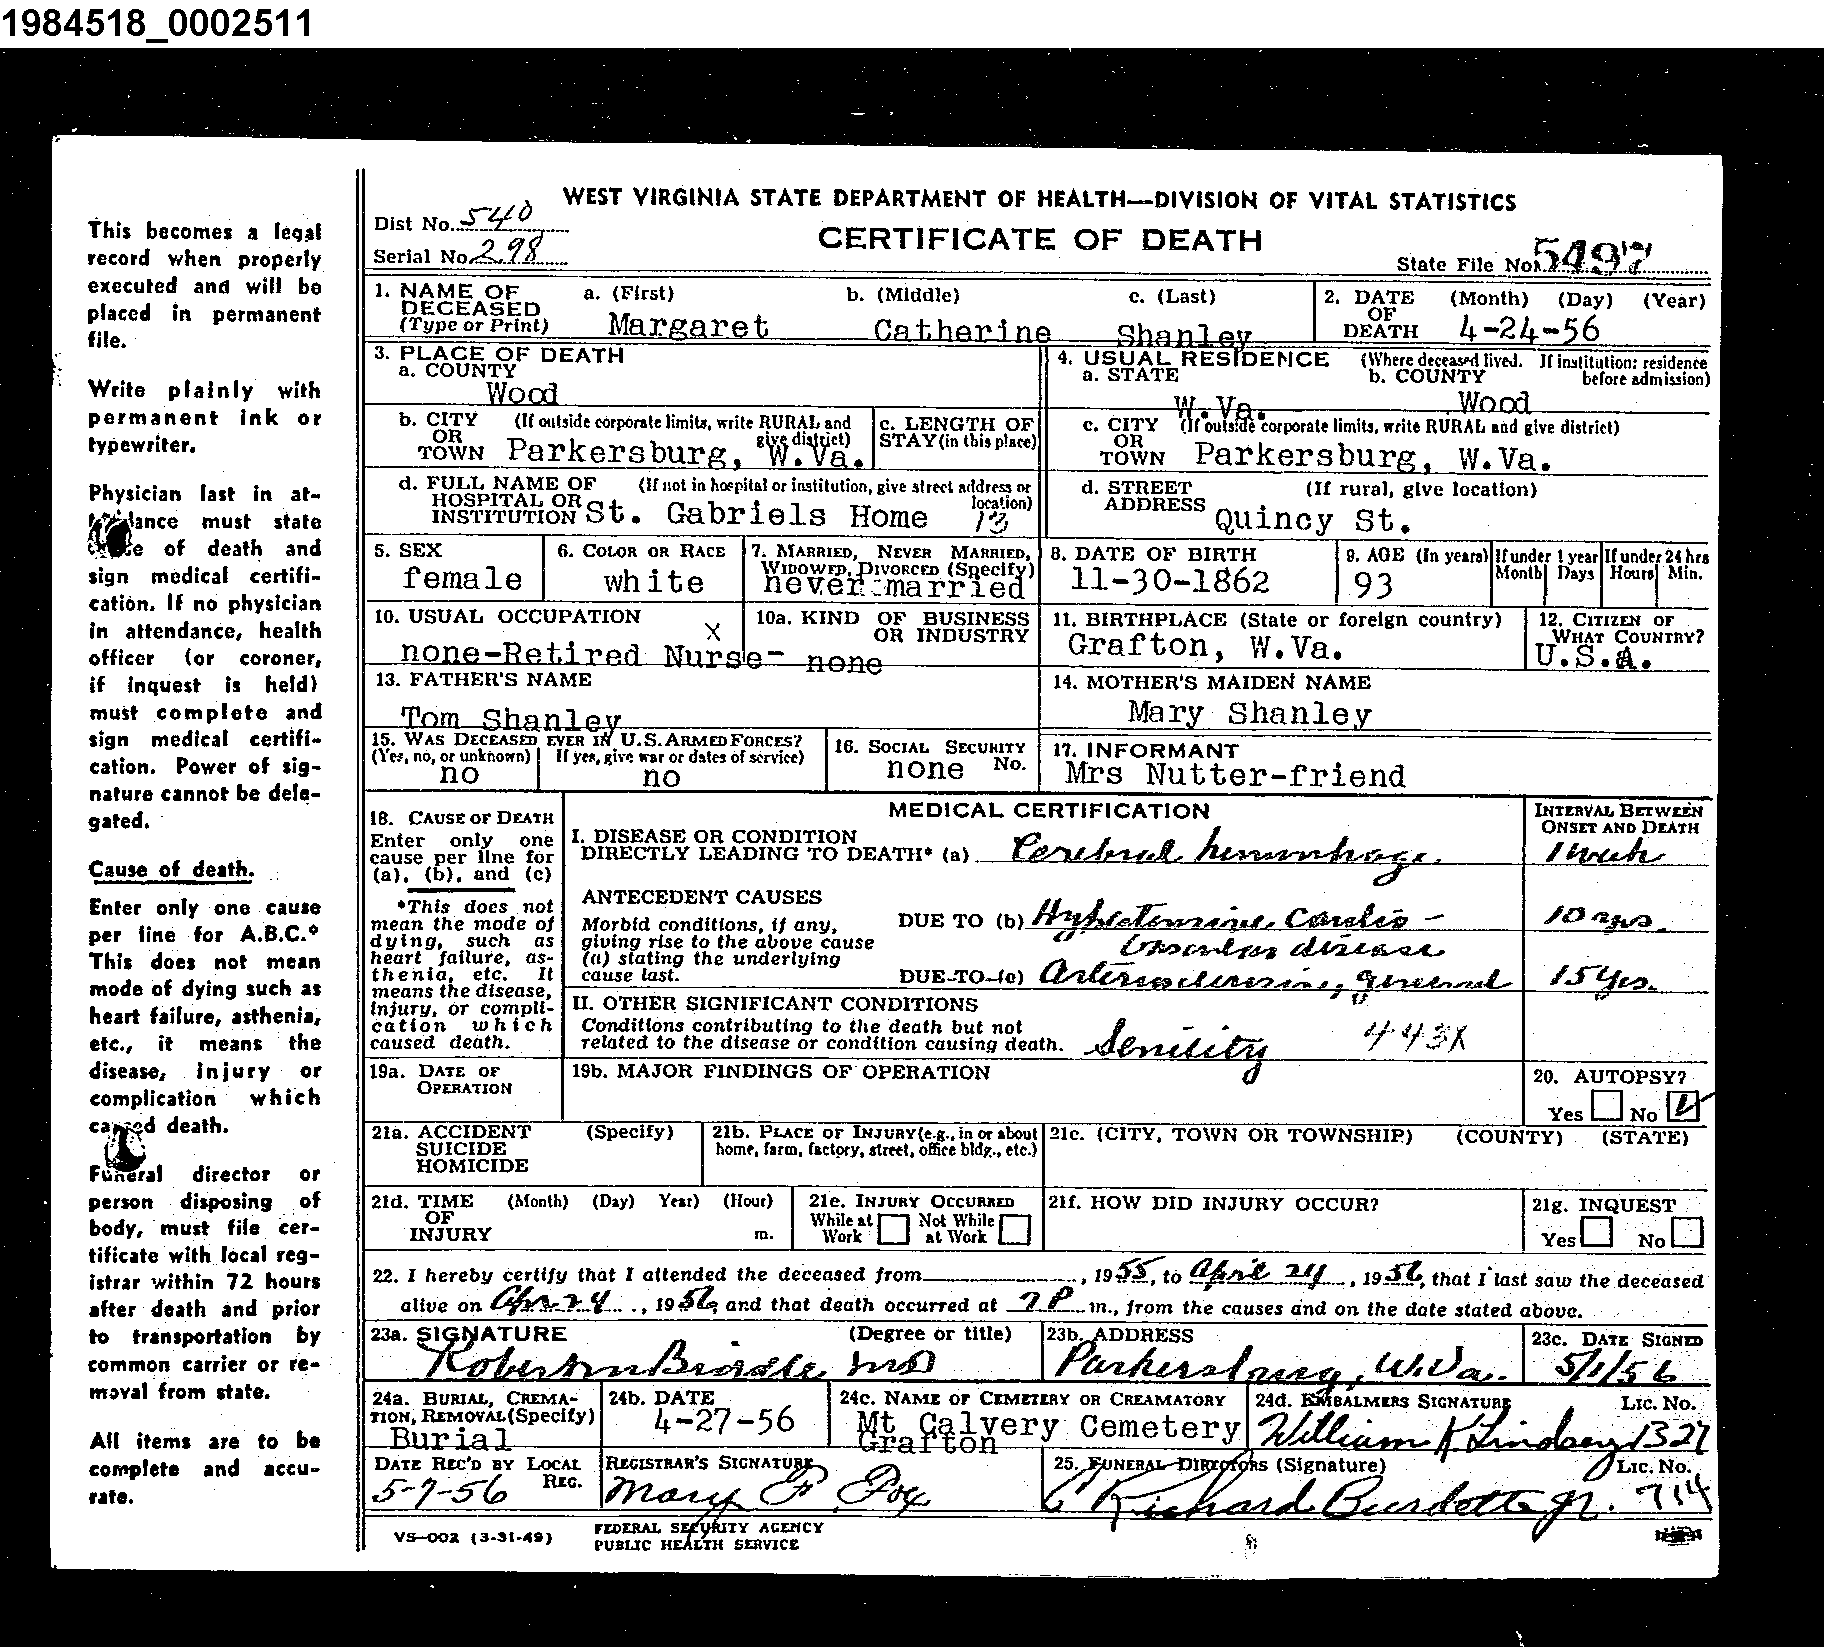 1984518_0002511
This becomes a legal
record when properly
executed and will be
placed in permanent
file.
Write plainly with
permanent ink or
typewriter.
Physician last in at-
must state
of death and
sign medical certifi-
cation. If no physician
in attendance, health
officer (or coroner,
if inquest is held)
must complete and
sign medical certifi-
cation. Power of sig-
nature cannot be dele-
gated.
Cause of death.
Enter only one cause
per line for A.B.C.*
This does not mean
mode of dying such as
heart failure, asthenia,
etc., it means the
disease, injury or
complication which
caused death.
Funeral director or
person disposing of
body, must file cer-
tificate with local reg-
istrar within 72 hours
after death and prior
to transportation by
common carrier or re-
moval from state.
All items are to be
complete and accu-
rate.
WEST VIRGINIA STATE DEPARTMENT OF HEALTH—DIVISION OF VITAL STATISTICS
Dist No. 540
CERTIFICATE OF DEATH
Serial No. 298
State File No. 5497
1. NAME OF DECEASED (Type or Print) a. (First) b. (Middle) c. (Last)
Margaret Catherine Shanley
2. DATE OF DEATH (Month) (Day) (Year)
4-24-56
3. PLACE OF DEATH
a. COUNTY
Wood
4. USUAL RESIDENCE (Where deceased lived. If institution: residence before admission)
a. STATE b. COUNTY
W.Va. Wood
b. CITY OR TOWN (If outside corporate limits, write RURAL and give district)
Parkersburg, W.Va.
c. LENGTH OF STAY (in this place)
c. CITY OR TOWN (If outside corporate limits, write RURAL and give district)
Parkersburg, W.Va.
d. FULL NAME OF HOSPITAL OR INSTITUTION (If not in hospital or institution, give street address or location)
St. Gabriels Home 13
d. STREET ADDRESS (If rural, give location)
Quincy St.
5. SEX
female
6. COLOR OR RACE
white
7. MARRIED, NEVER MARRIED, WIDOWED, DIVORCED (Specify)
never married
8. DATE OF BIRTH
11-30-1862
9. AGE (In years) If under 1 year Month Days If under 24 hrs Hours Min.
93
10. USUAL OCCUPATION X
none-Retired Nurse-
10a. KIND OF BUSINESS OR INDUSTRY
none
11. BIRTHPLACE (State or foreign country)
Grafton, W.Va.
12. CITIZEN OF WHAT COUNTRY?
U.S.A.
13. FATHER'S NAME
Tom Shanley
14. MOTHER'S MAIDEN NAME
Mary Shanley
15. WAS DECEASED EVER IN U.S. ARMED FORCES?
(Yes, no, or unknown) If yes, give war or dates of service)
no no
16. SOCIAL SECURITY No.
none
17. INFORMANT
Mrs Nutter-friend
18. CAUSE OF DEATH
Enter only one
cause per line for
(a), (b), and (c)
*This does not
mean the mode of
dying, such as
heart failure, as-
thenia, etc. It
means the disease,
injury, or compli-
cation which
caused death.
MEDICAL CERTIFICATION
INTERVAL BETWEEN ONSET AND DEATH
I. DISEASE OR CONDITION
DIRECTLY LEADING TO DEATH* (a) Cerebral hemorrhage 1 week
ANTECEDENT CAUSES
Morbid conditions, if any,
giving rise to the above cause
(a) stating the underlying
cause last.
DUE TO (b) Hypertensive Cardio- 10 yrs.
Vascular disease
DUE TO (c) Arteriosclerosis, general 15 yrs.
II. OTHER SIGNIFICANT CONDITIONS
Conditions contributing to the death but not
related to the disease or condition causing death. Senility 443X
19a. DATE OF OPERATION
19b. MAJOR FINDINGS OF OPERATION
20. AUTOPSY?
Yes No
21a. ACCIDENT SUICIDE HOMICIDE (Specify)
21b. PLACE OF INJURY (e.g., in or about home, farm, factory, street, office bldg., etc.)
21c. (CITY, TOWN OR TOWNSHIP) (COUNTY) (STATE)
21d. TIME OF INJURY (Month) (Day) Year) (Hour) m.
21e. INJURY OCCURRED
While at Work Not While at Work
21f. HOW DID INJURY OCCUR?
21g. INQUEST
Yes No
22. I hereby certify that I attended the deceased from , 1955, to April 24, 1956, that I last saw the deceased
alive on Apr 24, 1956, and that death occurred at 7 P m., from the causes and on the date stated above.
23a. SIGNATURE (Degree or title)
MD
23b. ADDRESS
Parkersburg, W.Va.
23c. DATE SIGNED
5/1/56
24a. BURIAL, CREMA-
TION, REMOVAL (Specify)
Burial
24b. DATE
4-27-56
24c. NAME OF CEMETERY OR CREAMATORY
Mt Calvery Cemetery
Grafton
24d. EMBALMERS SIGNATURE LIC. NO.
William K Lindsey 1327
DATE REC'D BY LOCAL REG.
5-7-56
REGISTRAR'S SIGNATURE
Mary F Fox
25. FUNERAL DIRECTORS (Signature) LIC. NO.
C Richard Burdette Jr. 714
VS-002 (3-31-49)
FEDERAL SECURITY AGENCY
PUBLIC HEALTH SERVICE